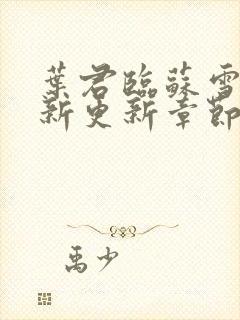 葉君臨蘇雪
新更新章節
禹少